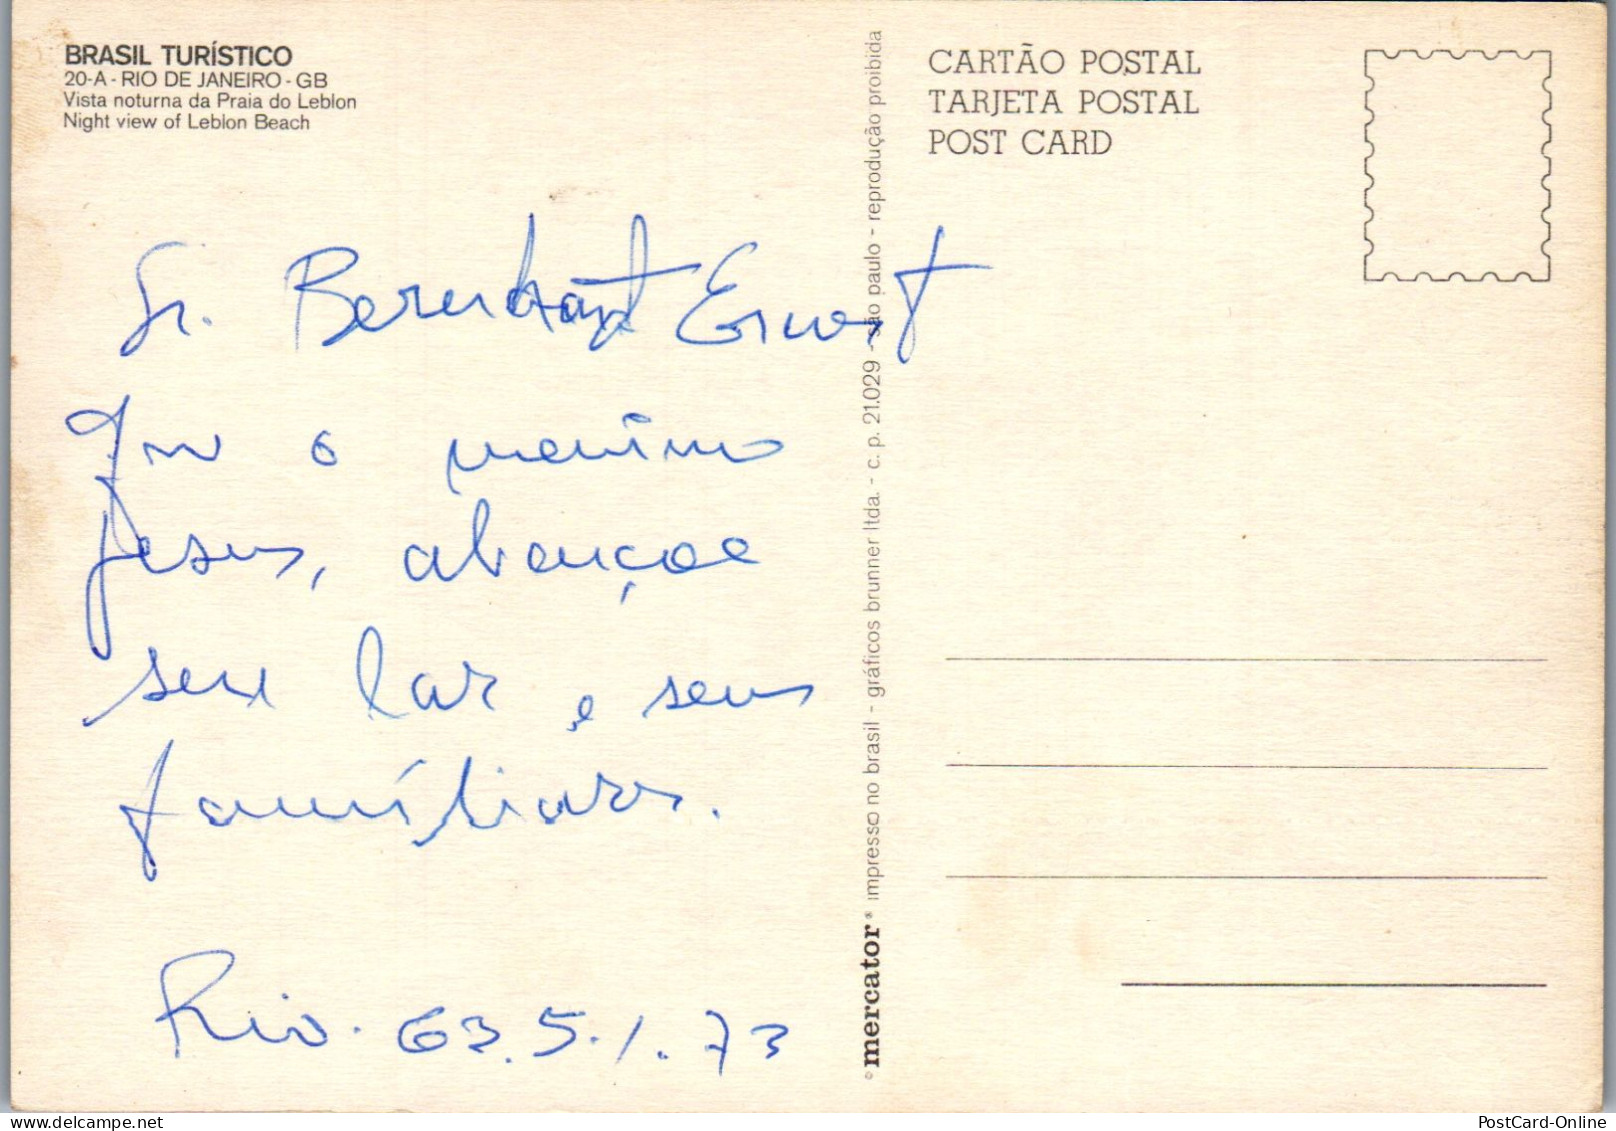 BRASIL TURÍSTICO
20-A - RIO DE JANEIRO - GB
Vista noturna da Praia do Leblon
Night view of Leblon Beach
CARTÃO POSTAL
TARJETA POSTAL
POST CARD
Sr. Ernest
Que o menino
Jesus, abençoe
seu lar e seus
famíliares.
Rio. GB. 5.1.73
© mercator ® impresso no brasil - gráficos brunner ltda. - c. p. 21.029 - são paulo - reprodução proibida
PostCard-Online